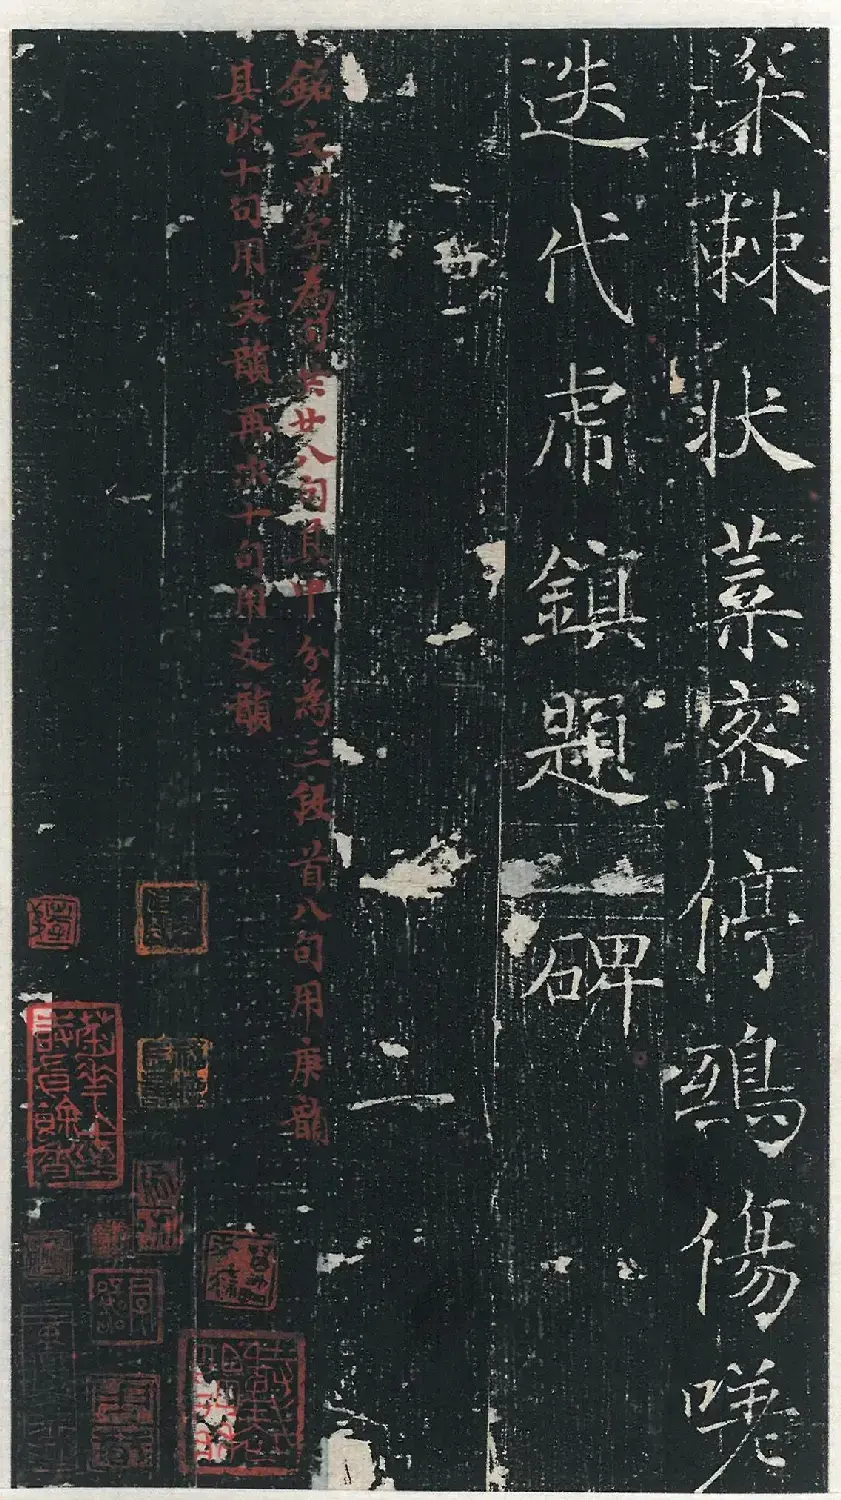 深棘状葉密停鵶傷嗟
迭代虚鎮題碑
銘文四字為句共廿八句其中分為三段首八句用庚韻
其次十句用文韻再次十句用支韻